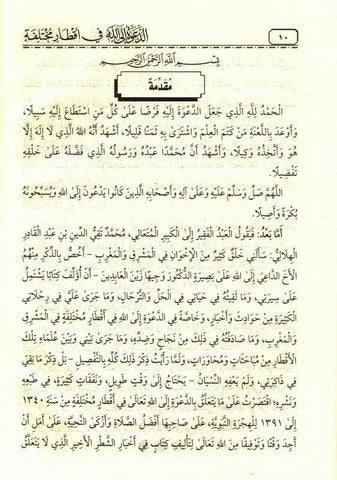 ١٠ الدعوة إلى الله في أقطار مختلفة
بِسْمِ اللَّهِ الرَّحْمَنِ الرَّحِيمِ
مُقَدِّمَةٌ
الْحَمْدُ لِلَّهِ الَّذِي جَعَلَ الدَّعْوَةَ إِلَيْهِ فَرْضًا عَلَى كُلِّ مَنِ اسْتَطَاعَ إِلَيْهِ سَبِيلًا،
وَأَوْعَدَ بِاللَّعْنَةِ مَنْ كَتَمَ الْعِلْمَ وَاشْتَرَى بِهِ ثَمَنًا قَلِيلًا، وَأَشْهَدُ أَنَّهُ اللهُ الَّذِي لَا إِلَهَ إِلَّا
هُوَ وَأَتَّخِذُهُ وَكِيلًا، وَأَشْهَدُ أَنَّ مُحَمَّدًا عَبْدُهُ وَرَسُولُهُ الَّذِي فَضَّلَهُ عَلَى خَلْقِهِ
تَفْضِيلًا.
اللَّهُمَّ صَلِّ وَسَلِّمْ عَلَيْهِ وَعَلَى آلِهِ وَأَصْحَابِهِ الَّذِينَ كَانُوا يَدْعُونَ إِلَى اللهِ وَيُسَبِّحُونَهُ
بُكْرَةً وَأَصِيلًا.
أَمَّا بَعْدُ: فَيَقُولُ الْعَبْدُ الْفَقِيرُ إِلَى الْكَبِيرِ الْمُتَعَالِي، مُحَمَّدٌ تَقِيُّ الدِّينِ بْنِ عَبْدِ الْقَادِرِ
الْهِلَالِيُّ: سَأَلَنِي خَلْقٌ كَثِيرٌ مِنَ الْإِخْوَانِ فِي الْمَشْرِقِ وَالْمَغْرِبِ - أَخُصُّ بِالذِّكْرِ مِنْهُمُ
الْأَخَ الدَّاعِيَ إِلَى اللهِ عَلَى بَصِيرَةٍ الدُّكْتُورَ وَجِيهًا زَيْنَ الْعَابِدِينَ - أَنْ أُؤَلِّفَ كِتَابًا يَشْتَمِلُ
عَلَى سِيرَتِي، وَمَا لَقِيتُهُ فِي حَيَاتِي فِي الْحِلِّ وَالتَّرْحَالِ، وَمَا جَرَى عَلَيَّ فِي رِحْلَاتِي
الْكَثِيرَةِ مِنْ حَوَادِثَ وَأَخْبَارٍ، وَخَاصَّةً فِي الدَّعْوَةِ إِلَى اللهِ فِي أَقْطَارٍ مُخْتَلِفَةٍ فِي الْمَشْرِقِ
وَالْمَغْرِبِ، وَمَا صَادَفْتُهُ فِي ذَلِكَ مِنْ نَجَاحٍ وَضِدِّهِ، وَمَا جَرَى بَيْنِي وَبَيْنَ عُلَمَاءِ تِلْكَ
الْأَقْطَارِ مِنْ مُبَاحَثَاتٍ وَمُحَاوَرَاتٍ، وَلَمَّا رَأَيْتُ ذِكْرَ ذَلِكَ كُلِّهِ بِالتَّفْصِيلِ - بَلْ ذِكْرَ مَا بَقِيَ
فِي ذَاكِرَتِي، وَلَمْ يَعْفُهُ النِّسْيَانُ - يَحْتَاجُ إِلَى وَقْتٍ طَوِيلٍ، وَنَفَقَاتٍ كَثِيرَةٍ، فِي طَبْعِهِ
وَنَشْرِهِ؛ اقْتَصَرْتُ عَلَى مَا يَتَعَلَّقُ بِالدَّعْوَةِ إِلَى اللهِ تَعَالَى فِي أَقْطَارٍ مُخْتَلِفَةٍ مِنْ سَنَةِ ١٣٤٠
إِلَى ١٣٩١ لِلْهِجْرَةِ النَّبَوِيَّةِ، عَلَى صَاحِبِهَا أَفْضَلُ الصَّلَاةِ وَأَزْكَى التَّحِيَّةِ، عَلَى أَمَلِ أَنْ
أَجِدَ وَقْتًا وَتَوْفِيقًا مِنَ اللهِ تَعَالَى لِتَأْلِيفِ كِتَابٍ فِي أَخْبَارِ الشَّطْرِ الْأَخِيرِ الَّذِي لَا يَتَعَلَّقُ